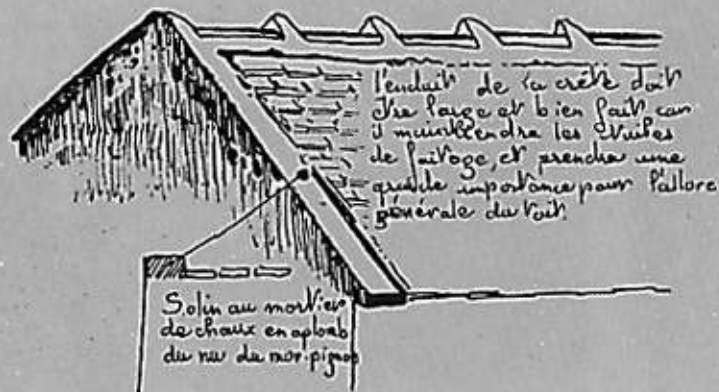 l'enduit de la crête doit
être large et bien fait car
il maintiendra les tuiles
de faitage, et prendra une
grande importance pour l'allure
générale du toit.
Solin au mortier
de chaux en aplomb
du nu du mur-pignon